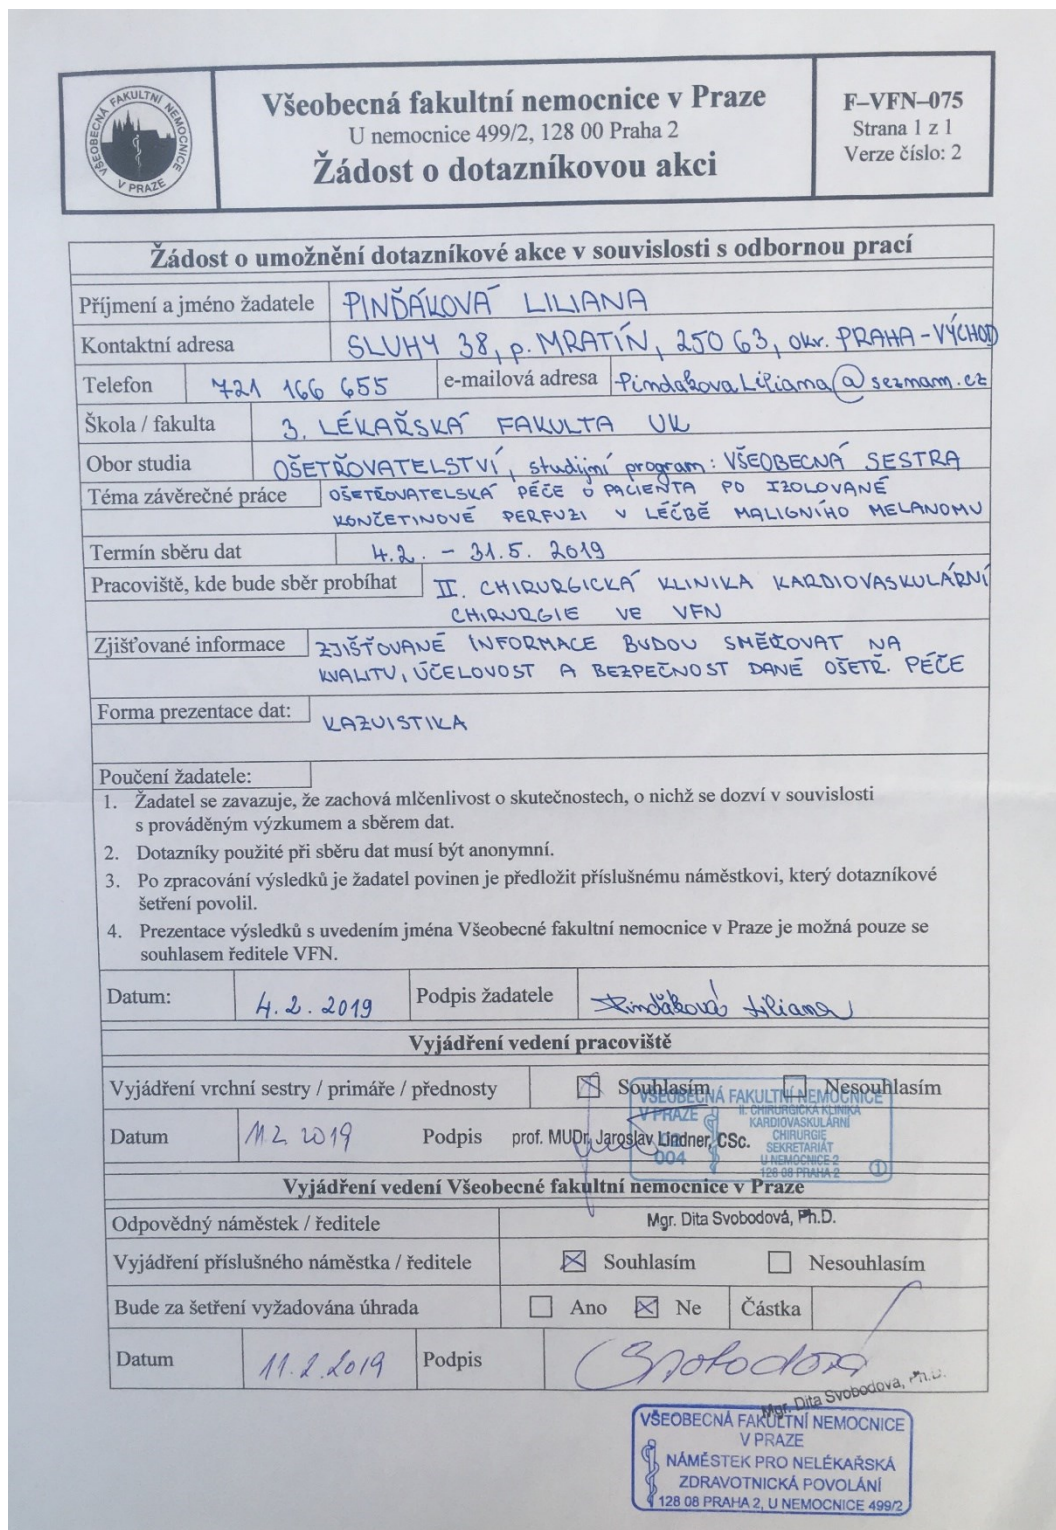 VŠEOBECNÁ FAKULTNÍ NEMOCNICE
V PRAZE
Všeobecná fakultní nemocnice v Praze
U nemocnice 499/2, 128 00 Praha 2
Žádost o dotazníkovou akci
F–VFN–075
Strana 1 z 1
Verze číslo: 2
Žádost o umožnění dotazníkové akce v souvislosti s odbornou prací
Příjmení a jméno žadatele PINĎÁKOVÁ LILIANA
Kontaktní adresa SLUHY 38, p. MRATÍN, 250 63, okr. PRAHA-VÝCHOD
Telefon 721 166 655 e-mailová adresa PindakovaLiliana@seznam.cz
Škola / fakulta 3. LÉKAŘSKÁ FAKULTA UK
Obor studia OŠETŘOVATELSTVÍ, studijní program: VŠEOBECNÁ SESTRA
Téma závěrečné práce OŠETŘOVATELSKÁ PÉČE O PACIENTA PO IZOLOVANÉ
KONČETINOVÉ PERFUZI V LÉČBĚ MALIGNÍHO MELANOMU
Termín sběru dat 4.2. - 31.5. 2019
Pracoviště, kde bude sběr probíhat II. CHIRURGICKÁ KLINIKA KARDIOVASKULÁRNÍ
CHIRURGIE VE VFN
Zjišťované informace ZJIŠŤOVANÉ INFORMACE BUDOU SMĚŘOVAT NA
KVALITU, ÚČELOVOST A BEZPEČNOST DANÉ OŠETŘ. PÉČE
Forma prezentace dat: KAZUISTIKA
Poučení žadatele:
1. Žadatel se zavazuje, že zachová mlčenlivost o skutečnostech, o nichž se dozví v souvislosti
s prováděným výzkumem a sběrem dat.
2. Dotazníky použité při sběru dat musí být anonymní.
3. Po zpracování výsledků je žadatel povinen je předložit příslušnému náměstkovi, který dotazníkové
šetření povolil.
4. Prezentace výsledků s uvedením jména Všeobecné fakultní nemocnice v Praze je možná pouze se
souhlasem ředitele VFN.
Datum: 4.2.2019 Podpis žadatele Pinďáková Liliana
Vyjádření vedení pracoviště
Vyjádření vrchní sestry / primáře / přednosty Souhlasím Nesouhlasím
VŠEOBECNÁ FAKULTNÍ NEMOCNICE
V PRAZE II. CHIRURGICKÁ KLINIKA
KARDIOVASKULÁRNÍ
CHIRURGIE
SEKRETARIÁT
004 U NEMOCNICE 2
128 08 PRAHA 2 1
Datum 11.2 2019 Podpis prof. MUDr. Jaroslav Lindner, CSc.
Vyjádření vedení Všeobecné fakultní nemocnice v Praze
Odpovědný náměstek / ředitele Mgr. Dita Svobodová, Ph.D.
Vyjádření příslušného náměstka / ředitele Souhlasím Nesouhlasím
Bude za šetření vyžadována úhrada Ano Ne Částka
Datum 11.2.2019 Podpis Svobodová
Mgr. Dita Svobodová, Ph.D.
VŠEOBECNÁ FAKULTNÍ NEMOCNICE
V PRAZE
NÁMĚSTEK PRO NELÉKAŘSKÁ
ZDRAVOTNICKÁ POVOLÁNÍ
128 08 PRAHA 2, U NEMOCNICE 499/2